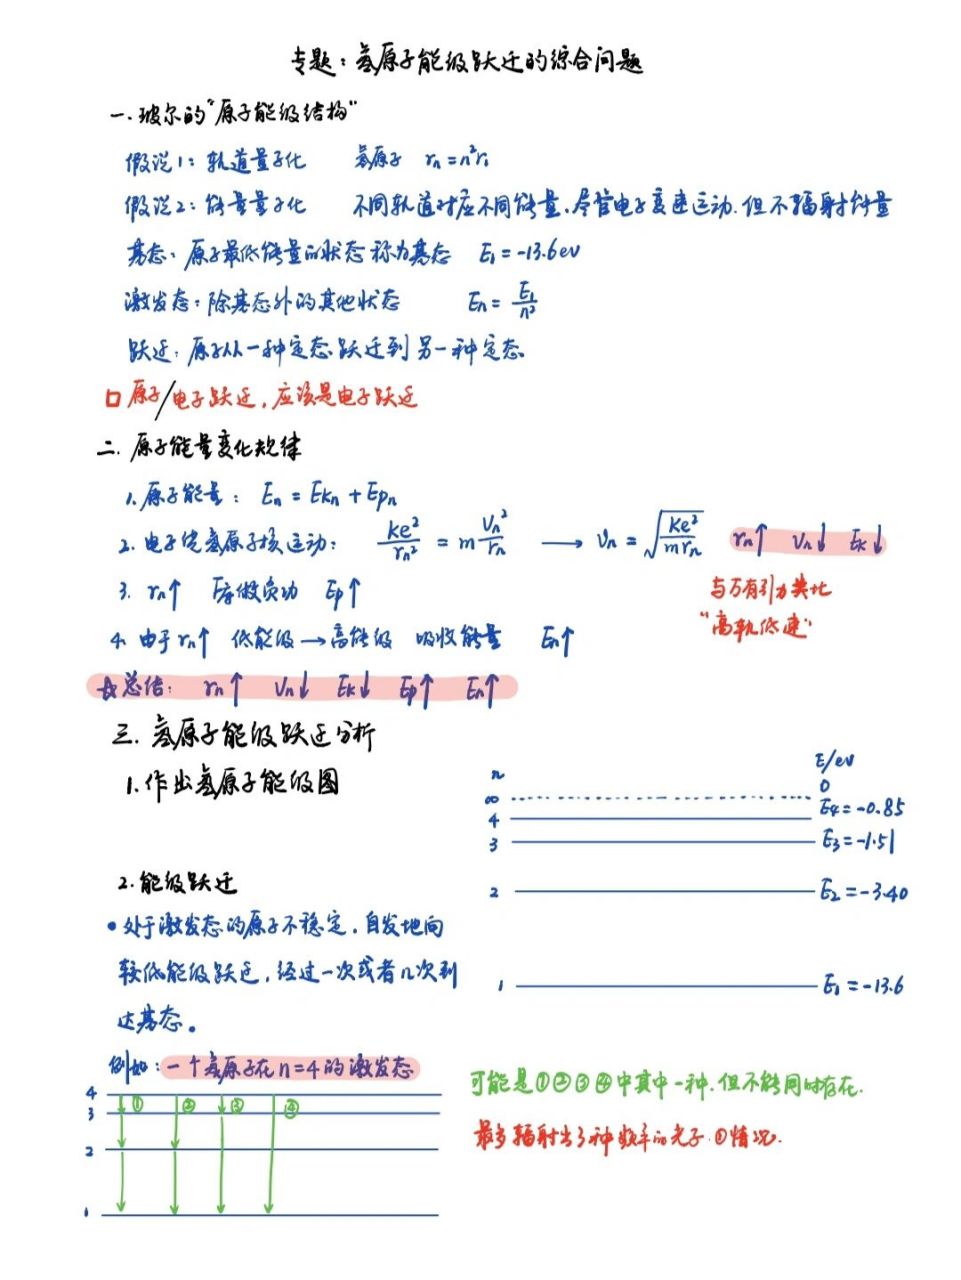 专题：氢原子能级跃迁的综合问题
一.玻尔的"原子能级结构"
假说1：轨道量子化 氢原子 rn=n²r₁
假说2：能量量子化 不同轨道对应不同能量.尽管电子变速运动.但不辐射能量
基态：原子最低能量的状态称为基态 E₁=-13.6ev
激发态：除基态外的其他状态 En=E₁/n²
跃迁：原子从一种定态跃迁到另一种定态
口 原子/电子跃迁，应该是电子跃迁
二.原子能量变化规律
1.原子能量：En=Ekn+Epn
2.电子绕氢原子核运动：ke²/rn²=m vn²/rn → vn=√(ke²/mrn) rn↑ vn↓ Ek↓
与万有引力类比
3. rn↑ F库做负功 Ep↑
"高轨低速"
4.由于rn↑ 低能级→高能级 吸收能量 En↑
☆总结：rn↑ vn↓ Ek↓ Ep↑ En↑
三.氢原子能级跃迁分析
1.作出氢原子能级图
n E/ev
∞ 0
4 E₄=-0.85
3 E₃=-1.51
2 E₂=-3.40
1 E₁=-13.6
2.能级跃迁
•处于激发态的原子不稳定，自发地向
较低能级跃迁，经过一次或者几次到
达基态。
例如：一个氢原子在n=4的激发态
4
3 ① ② ③ ④
2
1
可能是①②③④中其中一种.但不能同时存在.
最多辐射出3种频率的光子.①情况.